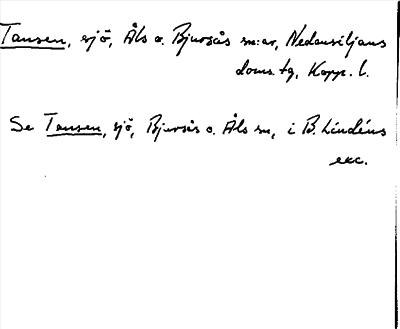 Tansen, sjö, Åls o. Bjursås sn:ar, Nedansiljans
doms. tg, Kopp. l.
Se Tansen, sjö, Bjursås o. Åls sn, i B. Lindéns
exc.